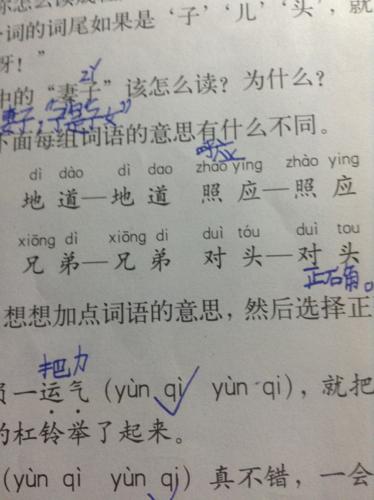 一词的词尾如果是‘子’‘儿’‘头’，就
呀！”
zǐ
中的“妻子”该怎么读？为什么？
下面每组词语的意思有什么不同。
呼应
dì dào dì dao zhào yìng zhào ying
地道—地道 照应—照应
xiōng dì xiōng di duì tóu duì tou
兄弟—兄弟 对头—对头
正确。
想想加点词语的意思，然后选择正
把力
一运气（yùn qì yùn qi），就把
的杠铃举了起来。
（yùn qì yùn qi）真不错，一会